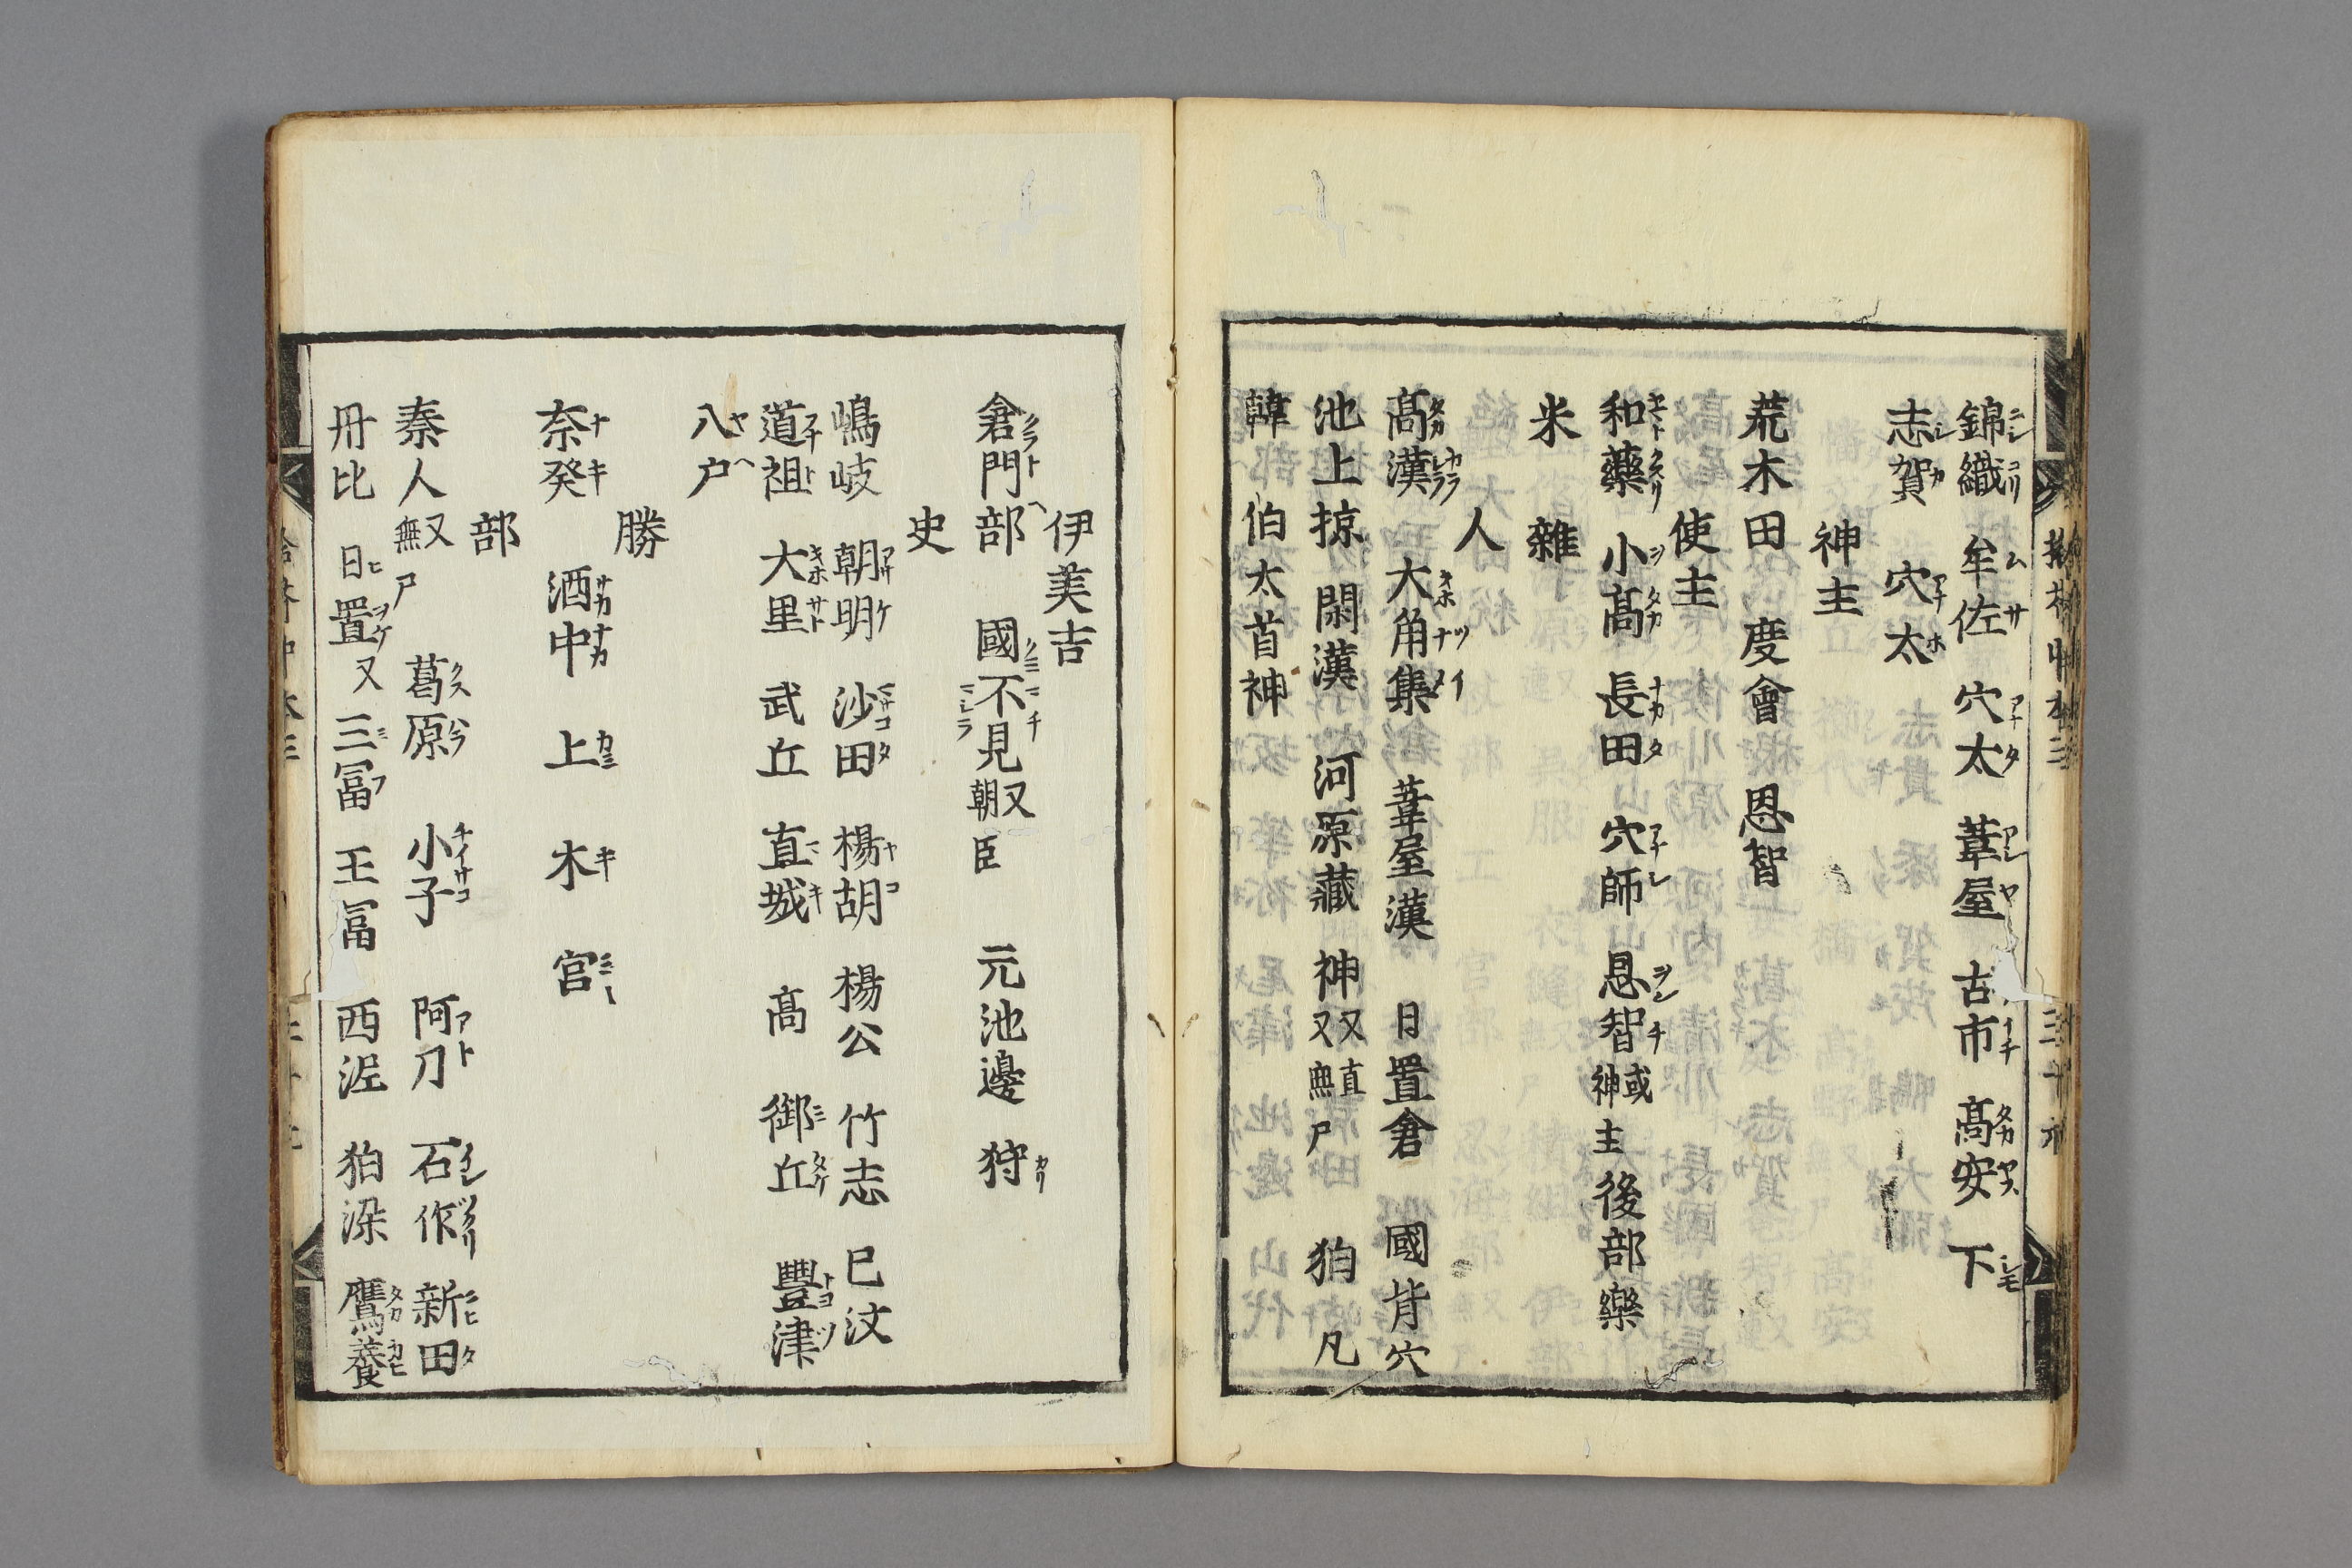 錦織　牟佐　穴太　葦屋　古市　高安　下
志賀　穴太
神主
荒木田　度會　恩智
使主
和藥　小高　長田　穴師　恩智或神主　後部樂
米　雜
人
高漢　大角集　葦屋漢　日置倉　國背穴
池上掠　閑漢　河原藏　神又直又無尸　狛　凡
韓　伯太首神
伊美吉
倉門部　國不見又朝臣　元池邊　狩
史
嶋岐　朝明　沙田　楊胡　楊公　竹志　巳汶
道祖　大里　武丘　直城　高　御丘　豐津
八戸
勝
奈癸　酒中　上　木　宮
部
秦人又無尸　葛原　小子　阿刀　石作　新田
丹比　日置又三冨　王冨　西泥　狛染　鷹養